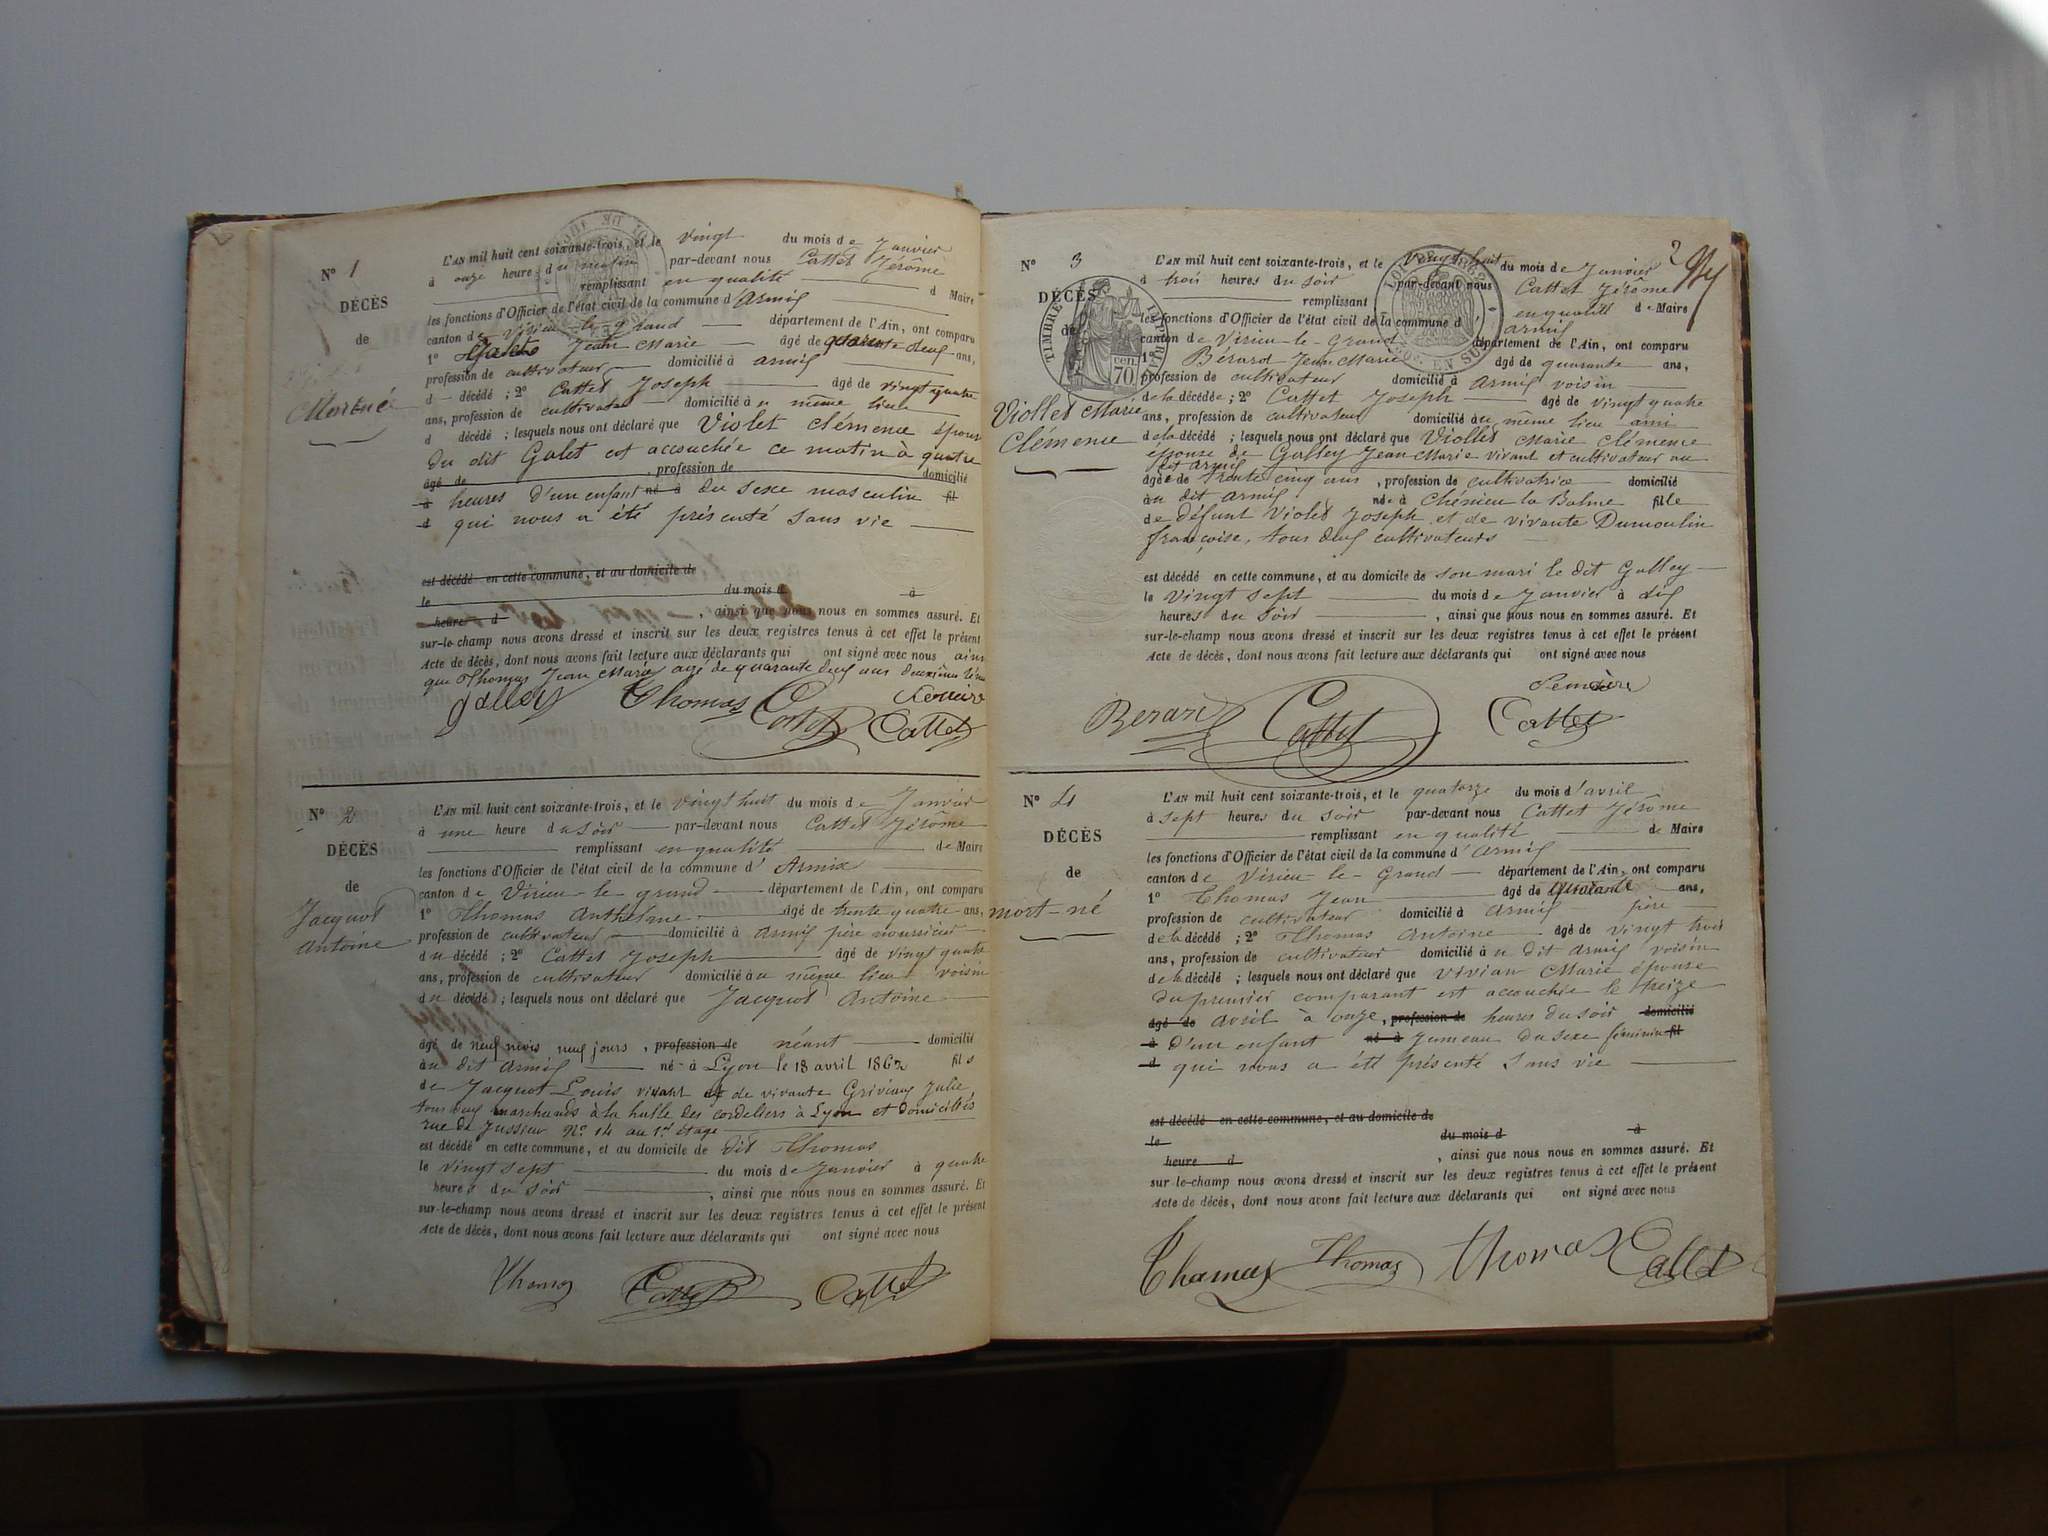 N° 1
DÉCÈS
de
Mort né
L'AN mil huit cent soixante-trois, et le vingt du mois de Janvier
à onze heures du matin par-devant nous Cattet Jérôme
remplissant en qualité d Maire
les fonctions d'Officier de l'état civil de la commune d'Armix
canton de Virieu-le-grand département de l'Ain, ont comparu
1° Jean Marie âgé de quarante deux ans,
profession de cultivateur domicilié à armix
d décédé ; 2° Cattet Joseph âgé de vingt quatre
ans, profession de cultivateur domicilié au même lieu
d décédé ; lesquels nous ont déclaré que Violet clémence épouse
du dit Galet est accouchée ce matin à quatre
âgé de , profession de domicilié
à heures d'un enfant né à du sexe masculin fil
d qui nous a été présenté sans vie
est décédé en cette commune, et au domicile de
le du mois d à
heure d , ainsi que nous nous en sommes assuré. Et
sur-le-champ nous avons dressé et inscrit sur les deux registres tenus à cet effet le présent
Acte de décès, dont nous avons fait lecture aux déclarants qui ont signé avec nous ainsi
que Thomas Jean Marie agé de quarante deux ans deuxième témoin
galley Thomas Cattet Cattet
N° 2
DÉCÈS
de
Jacquot
Antoine
L'AN mil huit cent soixante-trois, et le vingt huit du mois de Janvier
à une heure du soir par-devant nous Cattet Jérôme
remplissant en qualité de Maire
les fonctions d'Officier de l'état civil de la commune d' Armix
canton de Virieu-le-grand département de l'Ain, ont comparu
1° Thomas Anthelme âgé de trente quatre ans,
profession de cultivateur domicilié à armix père nourricier
du décédé ; 2° Cattet Joseph âgé de vingt quatre
ans, profession de cultivateur domicilié au même lieu voisin
du décédé ; lesquels nous ont déclaré que Jacquot Antoine
âgé de neuf mois neuf jours , profession de néant domicilié
au dit armix né à Lyon le 18 avril 1862 fils
de Jacquot Louis vivant et de vivante Julie
tous deux marchands à la halle des cordeliers à Lyon et domiciliés
rue de Jussieu N° 14 au 1er étage
est décédé en cette commune, et au domicile de dit Thomas
le vingt sept du mois de Janvier à quatre
heures du soir , ainsi que nous nous en sommes assuré. Et
sur-le-champ nous avons dressé et inscrit sur les deux registres tenus à cet effet le présent
Acte de décès, dont nous avons fait lecture aux déclarants qui ont signé avec nous
Thomas Cattet Cattet
2
N° 3
DÉCÈS
de
TIMBRE IMPERIAL
70 cen
Viollet Marie
Clémence
L'AN mil huit cent soixante-trois, et le vingt huit du mois de Janvier
à trois heures du soir par-devant nous Cattet Jérôme
remplissant en qualité de Maire
les fonctions d'Officier de l'état civil de la commune d' armix
canton de Virieu-le-Grand département de l'Ain, ont comparu
1° Bérard Jean Marie âgé de quarante ans,
profession de cultivateur domicilié à armix voisin
de la décédée ; 2° Cattet Joseph âgé de vingt quatre
ans, profession de cultivateur domicilié au même lieu ami
de la décédé ; lesquels nous ont déclaré que Viollet Marie Clémence
épouse de Galley Jean Marie vivant et cultivateur au
dit Armix
âgée de trente cinq ans , profession de cultivatrice domicilié
au dit armix née à Chénieu la Balme fille
de défunt Violet Joseph et de vivante Dumoulin
françoise, tous deux cultivateurs
est décédé en cette commune, et au domicile de son mari le dit Galley
le vingt sept du mois de Janvier à dix
heures du soir , ainsi que nous nous en sommes assuré. Et
sur-le-champ nous avons dressé et inscrit sur les deux registres tenus à cet effet le présent
Acte de décès, dont nous avons fait lecture aux déclarants qui ont signé avec nous
Berard Cattet Cattet
N° 4
DÉCÈS
de
mort-né
L'AN mil huit cent soixante-trois, et le quatorze du mois d'avril
à sept heures du soir par-devant nous Cattet Jérôme
remplissant en qualité de Maire
les fonctions d'Officier de l'état civil de la commune d' armix
canton de Virieu-le-Grand département de l'Ain, ont comparu
1° Thomas Jean âgé de quarante ans,
profession de cultivateur domicilié à armix père
de la décédé ; 2° Thomas Antoine âgé de vingt trois
ans, profession de cultivateur domicilié au dit armix voisin
de la décédé ; lesquels nous ont déclaré que vivian Marie épouse
du premier comparant est accouchée le treize
âgé de avril à onze, profession de heures du soir domicilié
à d'un enfant né à jumeau du sexe féminin fil
d qui nous a été présenté sans vie
est décédé en cette commune, et au domicile de
le du mois d à
heure d , ainsi que nous nous en sommes assuré. Et
sur-le-champ nous avons dressé et inscrit sur les deux registres tenus à cet effet le présent
Acte de décès, dont nous avons fait lecture aux déclarants qui ont signé avec nous
Thomas Thomas Thomas Cattet